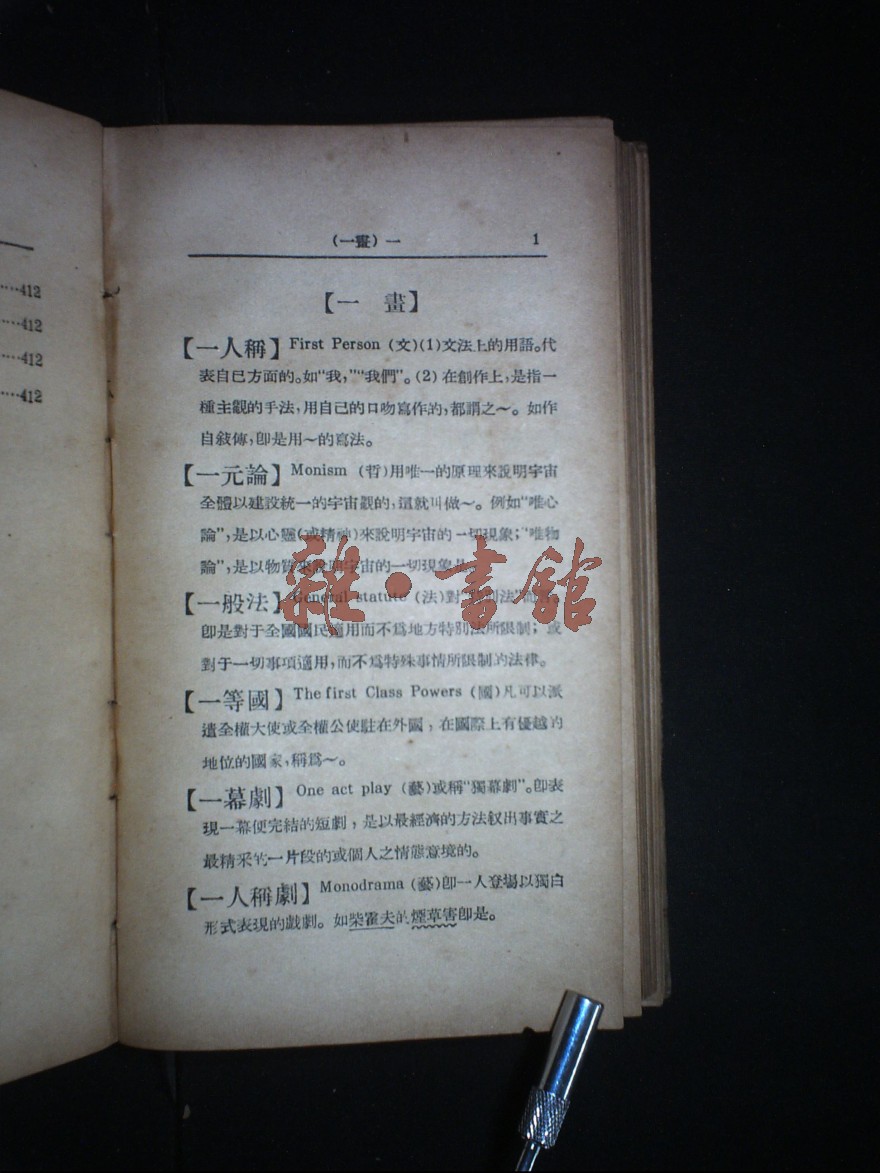 412
412
412
412
(一畫) 一 1
【一 畫】
【一人稱】 First Person (文)(1)文法上的用語。代
表自已方面的。如“我,”“我們”。(2) 在創作上,是指一
種主觀的手法,用自己的口吻寫作的,都謂之~。如作
自敍傳,卽是用~的寫法。
【一元論】 Monism (哲)用唯一的原理來說明宇宙
全體以建設統一的宇宙觀的,這就叫做~。例如“唯心
論”,是以心靈(或精神)來說明宇宙的一切現象;“唯物
論”,是以物質來說明宇宙的一切現象
【一般法】 General statute (法)對
卽是對于全國國民適用而不爲地方特別法所限制; 或
對于一切事項適用,而不爲特殊事情所限制的法律。
【一等國】 The first Class Powers (國)凡可以派
遣全權大使或全權公使駐在外國,在國際上有優越的
地位的國家,稱爲~。
【一幕劇】 One act play (藝)或稱“獨幕劇”。卽表
現一幕便完結的短劇,是以最經濟的方法叙出事實之
最精采的一片段的或個人之情態意境的。
【一人稱劇】 Monodrama (藝)卽一人登場以獨白
形式表現的戲劇。如柴霍夫的煙草害卽是。
雜·書館